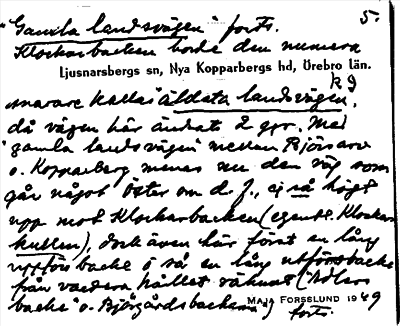 "Gamla landsvägen" forts. 5.
Klockarbacken borde den numera
Ljusnarsbergs sn, Nya Kopparbergs hd, Örebro län.
snarare kallas "äldsta landsvägen",
då vägen här ändrats 2 ggr. Med
"gamla landsvägen" mellan Björsarv
o. Kopparberg menas nu den väg som
går något öster om d. f., ej så högt
upp mot Klockarbacken (egentl. Klockar-
kullen), dock även här först en lång
uppförsbacke o så en lång utförsbacke
från vardera hållet räknat ("
backe" o. Björgårdsbacken")
MAJA FORSSLUND 1949
forts.